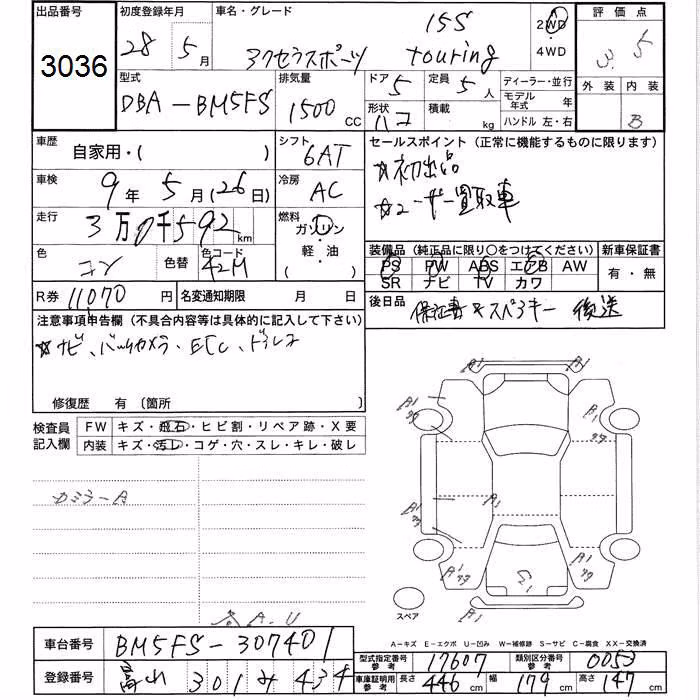 出品番号 初度登録年月 車名・グレード 評価点
3036 28年 5月 アクセラスポーツ 15S touring 2WD 4WD 3.5
型式 排気量 ドア 定員 ディーラー・並行 外装 内装
DBA-BM5FS 1500CC 5 5人 モデル年式 年
形状 積載 ハコ kg ハンドル 左・右 B
車歴 自家用・( ) シフト 6AT セールスポイント (正常に機能するものに限ります)
☆初出品
車検 9年 5月(26日) 冷房 AC
☆ユーザー買取車
走行 3万 千592km 燃料 ガソリン 軽・油 ( )
色 コン 色替 色コード 42M
装備品 (純正品に限り○をつけてください) 新車保証書
PS PW ABS エアB AW 有・無
SR ナビ TV カワ
R券 11070円 名変通知期限 月 日
後日品 保証書 スペアキー 後送
注意事項申告欄 (不具合内容等は具体的に記入して下さい)
☆ナビ、バックカメラ、ETC、ドラレコ
修復歴 有 〔箇所
検査員記入欄 FW キズ・飛石・ヒビ割・リペア跡・X要
内装 キズ・汚レ・コゲ・穴・スレ・キレ・破レ
A1 A1
A1 A1
A1 A1
A1 A1
スペア
A-キズ E-エクボ U-凹み W-補修跡 S-サビ C-腐食 XX-交換済
車台番号 BM5FS-307401
型式指定番号 参考 17607 類別区分番号 参考 0053
登録番号 301 み 434
車庫証明用 参考 長さ 446cm 幅 179cm 高さ 147cm